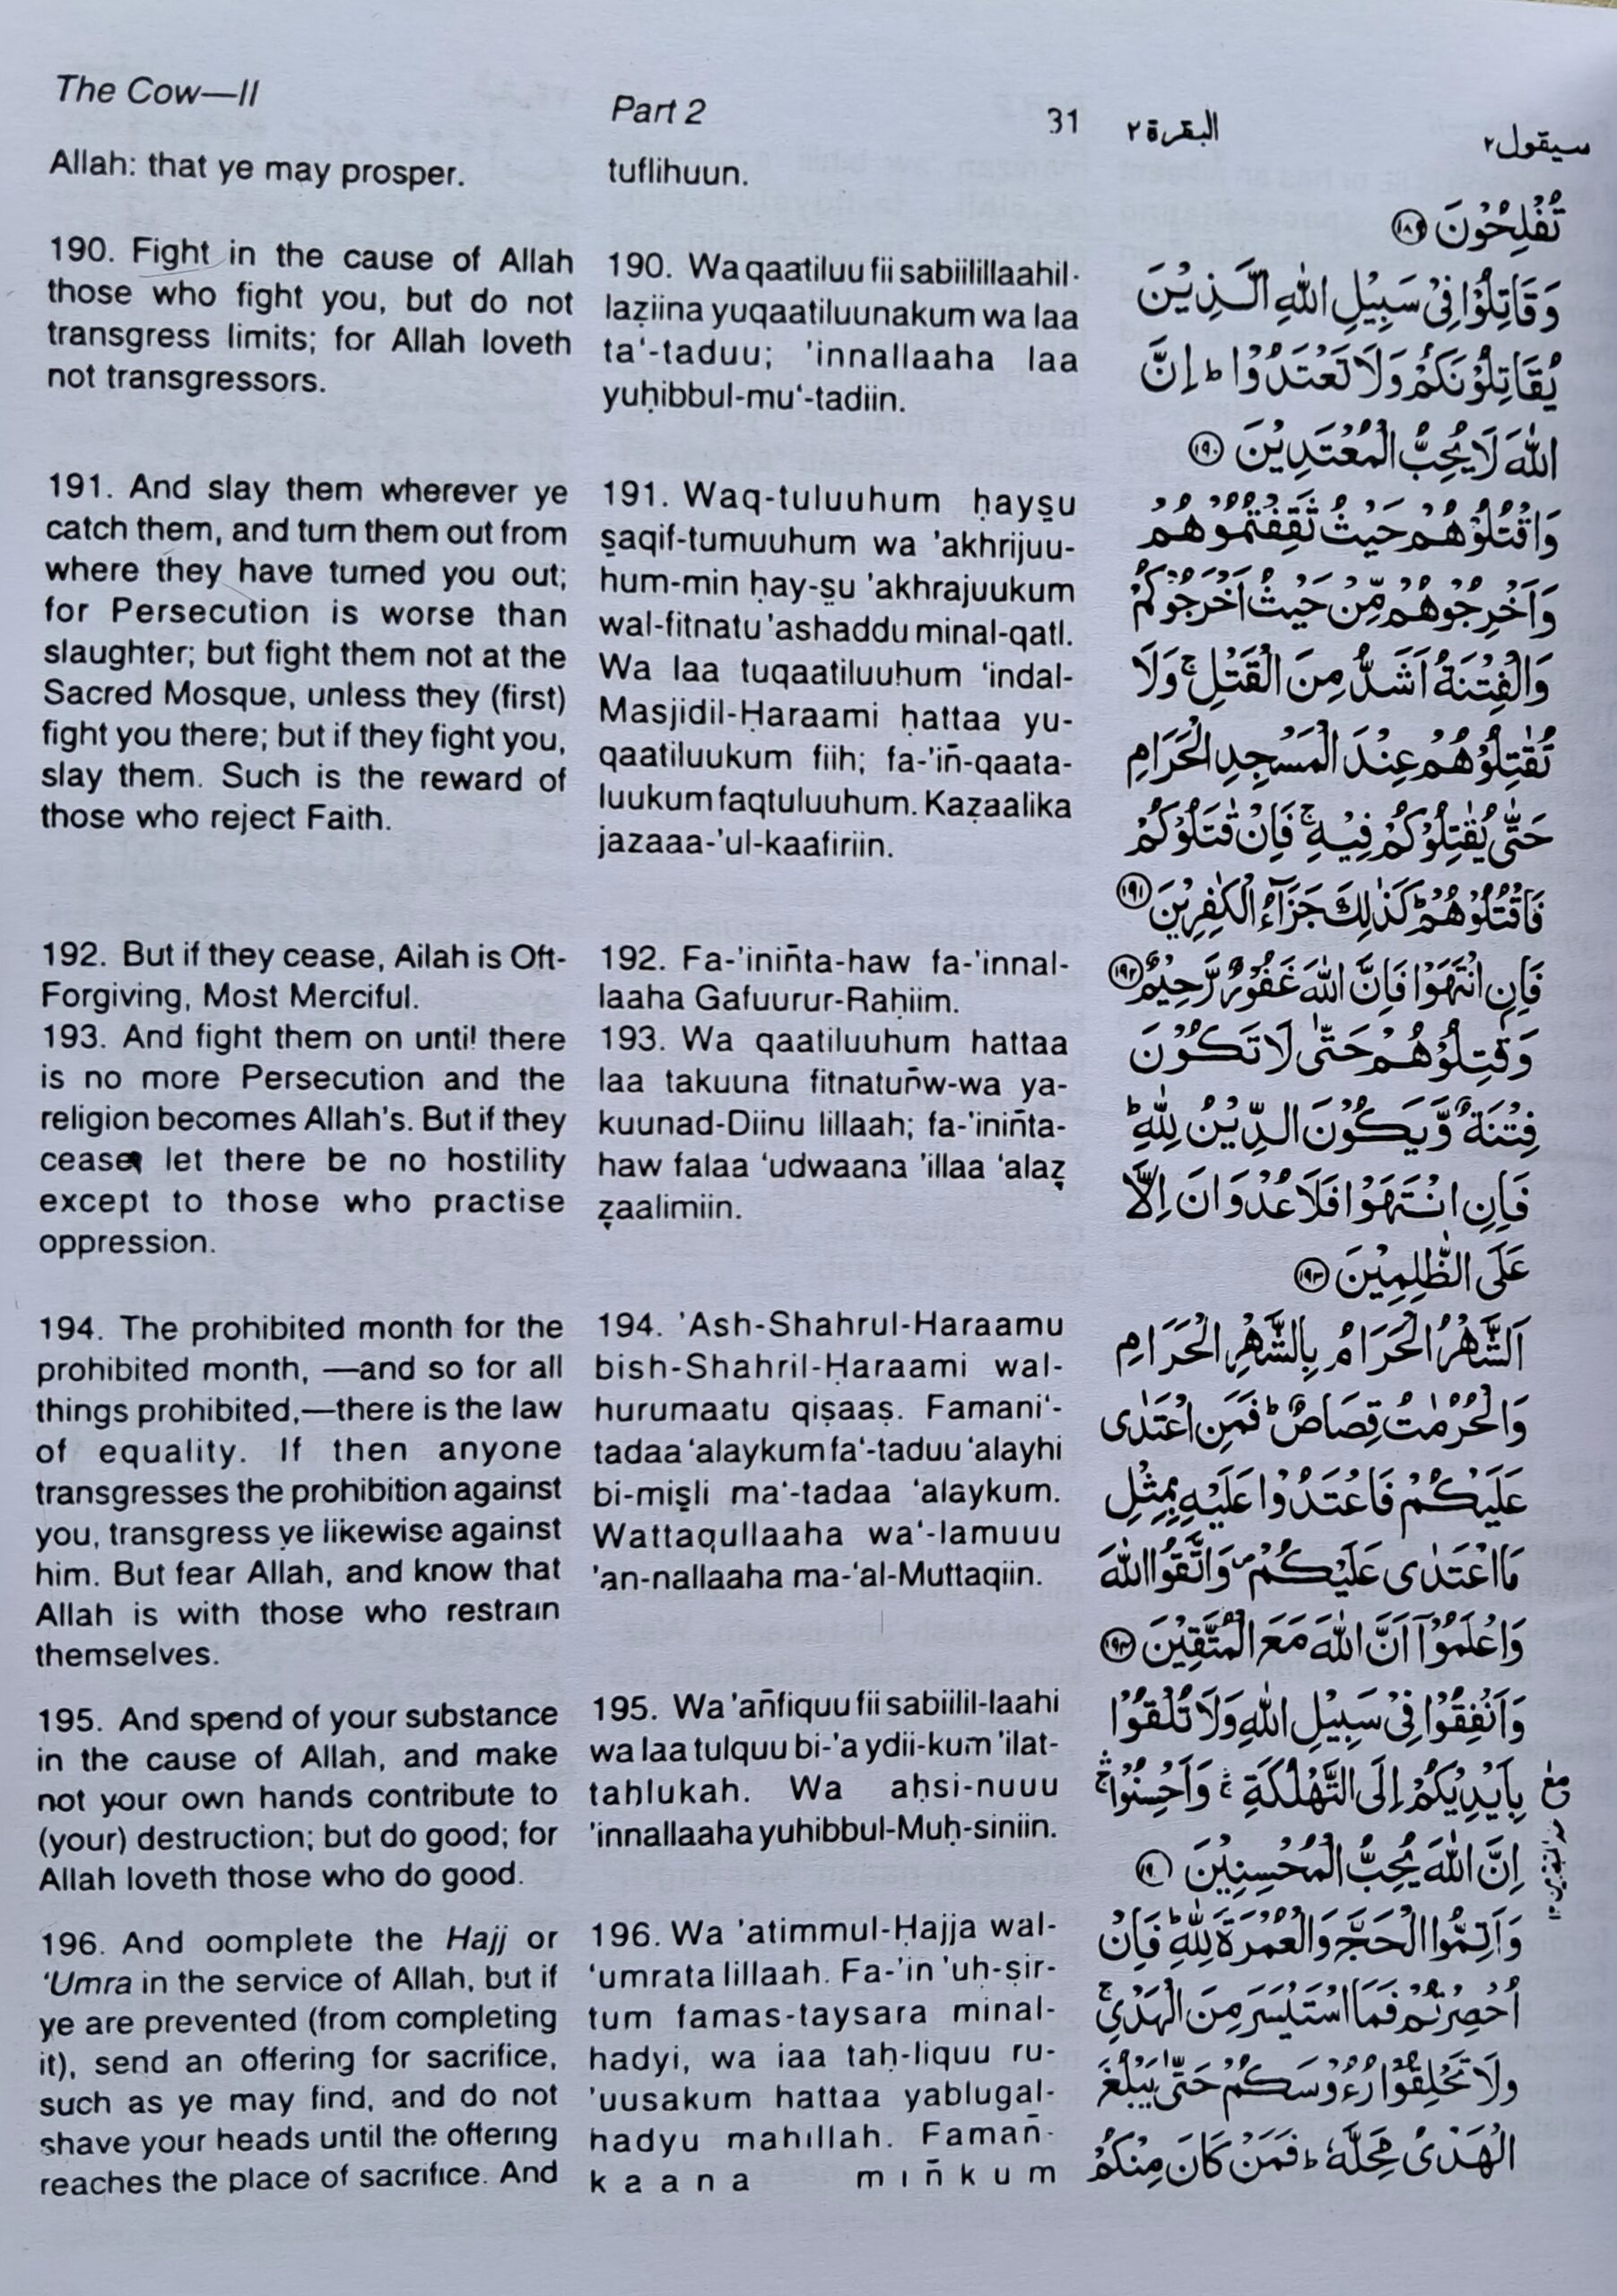 The Cow—II
Part 2
31
البقرة ٢
سيقول ٢
Allah: that ye may prosper.
190. Fight in the cause of Allah
those who fight you, but do not
transgress limits; for Allah loveth
not transgressors.
191. And slay them wherever ye
catch them, and turn them out from
where they have turned you out;
for Persecution is worse than
slaughter; but fight them not at the
Sacred Mosque, unless they (first)
fight you there; but if they fight you,
slay them. Such is the reward of
those who reject Faith.
192. But if they cease, Ailah is Oft-
Forgiving, Most Merciful.
193. And fight them on until there
is no more Persecution and the
religion becomes Allah's. But if they
cease, let there be no hostility
except to those who practise
oppression.
194. The prohibited month for the
prohibited month, —and so for all
things prohibited,—there is the law
of equality. If then anyone
transgresses the prohibition against
you, transgress ye likewise against
him. But fear Allah, and know that
Allah is with those who restrain
themselves.
195. And spend of your substance
in the cause of Allah, and make
not your own hands contribute to
(your) destruction; but do good; for
Allah loveth those who do good.
196. And oomplete the Hajj or
‘Umra in the service of Allah, but if
ye are prevented (from completing
it), send an offering for sacrifice,
such as ye may find, and do not
shave your heads until the offering
reaches the place of sacrifice. And
tuflihuun.
190. Wa qaatiluu fii sabiilillaahil-
laẓiina yuqaatiluunakum wa laa
ta‘-taduu; 'innallaaha laa
yuḥibbul-mu‘-tadiin.
191. Waq-tuluuhum ḥayṣu
ṣaqif-tumuuhum wa 'akhrijuu-
hum-min ḥay-ṣu 'akhrajuukum
wal-fitnatu 'ashaddu minal-qatl.
Wa laa tuqaatiluuhum ‘indal-
Masjidil-Ḥaraami ḥattaa yu-
qaatiluukum fiih; fa-'iñ-qaata-
luukum faqtuluuhum. Kaẓaalika
jazaaa-'ul-kaafiriin.
192. Fa-'iniñta-haw fa-'innal-
laaha Gafuurur-Raḥiim.
193. Wa qaatiluuhum hattaa
laa takuuna fitnatuñw-wa ya-
kuunad-Diinu lillaah; fa-'iniñta-
haw falaa ‘udwaana 'illaa ‘alaẓ
ẓaalimiin.
194. 'Ash-Shahrul-Haraamu
bish-Shahril-Ḥaraami wal-
hurumaatu qiṣaaṣ. Famani‘-
tadaa ‘alaykum fa‘-taduu ‘alayhi
bi-miṣli ma‘-tadaa ‘alaykum.
Wattaqullaaha wa‘-lamuuu
'an-nallaaha ma-‘al-Muttaqiin.
195. Wa 'añfiquu fii sabiilil-laahi
wa laa tulquu bi-'a ydii-kum 'ilat-
tahlukah. Wa aḥsi-nuuu
'innallaaha yuhibbul-Muḥ-siniin.
196. Wa 'atimmul-Ḥajja wal-
‘umrata lillaah. Fa-'in 'uh-ṣir-
tum famas-taysara minal-
hadyi, wa iaa taḥ-liquu ru-
'uusakum hattaa yablugal-
hadyu mahillah. Famañ-
kaana miñkum
تُفْلِحُوْنَ ۝١٨٩
وَقَاتِلُوْا فِىْ سَبِيْلِ اللّٰهِ الَّذِيْنَ
يُقَاتِلُوْنَكُمْ وَلَا تَعْتَدُوْا ؕ اِنَّ
اللّٰهَ لَا يُحِبُّ الْمُعْتَدِيْنَ ۝١٩٠
وَاقْتُلُوْهُمْ حَيْثُ ثَقِفْتُمُوْهُمْ
وَاَخْرِجُوْهُمْ مِّنْ حَيْثُ اَخْرَجُوْكُمْ
وَالْفِتْنَةُ اَشَدُّ مِنَ الْقَتْلِ ۚ وَلَا
تُقٰتِلُوْهُمْ عِنْدَ الْمَسْجِدِ الْحَرَامِ
حَتّٰى يُقٰتِلُوْكُمْ فِيْهِ ۚ فَاِنْ قٰتَلُوْكُمْ
فَاقْتُلُوْهُمْ ؕ كَذٰلِكَ جَزَآءُ الْكٰفِرِيْنَ ۝١٩١
فَاِنِ انْتَهَوْا فَاِنَّ اللّٰهَ غَفُوْرٌ رَّحِيْمٌ ۝١٩٢
وَقٰتِلُوْهُمْ حَتّٰى لَا تَكُوْنَ
فِتْنَةٌ وَّيَكُوْنَ الدِّيْنُ لِلّٰهِ ؕ
فَاِنِ انْتَهَوْا فَلَا عُدْوَانَ اِلَّا
عَلَى الظّٰلِمِيْنَ ۝١٩٣
اَلشَّهْرُ الْحَرَامُ بِالشَّهْرِ الْحَرَامِ
وَالْحُرُمٰتُ قِصَاصٌ ؕ فَمَنِ اعْتَدٰى
عَلَيْكُمْ فَاعْتَدُوْا عَلَيْهِ بِمِثْلِ
مَا اعْتَدٰى عَلَيْكُمْ ۪ وَاتَّقُوا اللّٰهَ
وَاعْلَمُوْٓا اَنَّ اللّٰهَ مَعَ الْمُتَّقِيْنَ ۝١٩٤
وَاَنْفِقُوْا فِىْ سَبِيْلِ اللّٰهِ وَلَا تُلْقُوْا
بِاَيْدِيْكُمْ اِلَى التَّهْلُكَةِ ۛۚ وَاَحْسِنُوْا ۛۚ
اِنَّ اللّٰهَ يُحِبُّ الْمُحْسِنِيْنَ
وَاَتِمُّوا الْحَجَّ وَالْعُمْرَةَ لِلّٰهِ ؕ فَاِنْ
اُحْصِرْتُمْ فَمَا اسْتَيْسَرَ مِنَ الْهَدْىِ ۚ
وَلَا تَحْلِقُوْا رُءُوْسَكُمْ حَتّٰى يَبْلُغَ
الْهَدْىُ مَحِلَّهٗ ؕ فَمَنْ كَانَ مِنْكُمْ